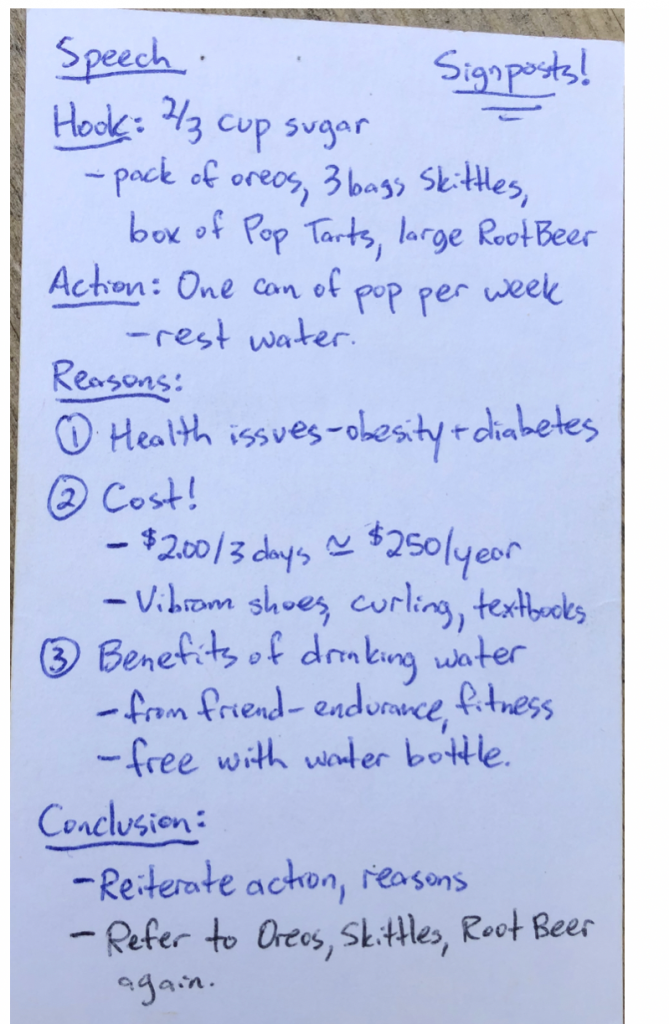 Speech
Signposts!
Hook: 2/3 cup sugar
- pack of oreos, 3 bags Skittles,
box of Pop Tarts, large Root Beer
Action: One can of pop per week
- rest water.
Reasons:
① Health issues - obesity + diabetes
② Cost!
- $2.00/3 days ≃ $250/year
- Vibram shoes, curling, textbooks
③ Benefits of drinking water
- from friend - endurance, fitness
- free with water bottle.
Conclusion:
- Reiterate action, reasons
- Refer to Oreos, Skittles, Root Beer
again.